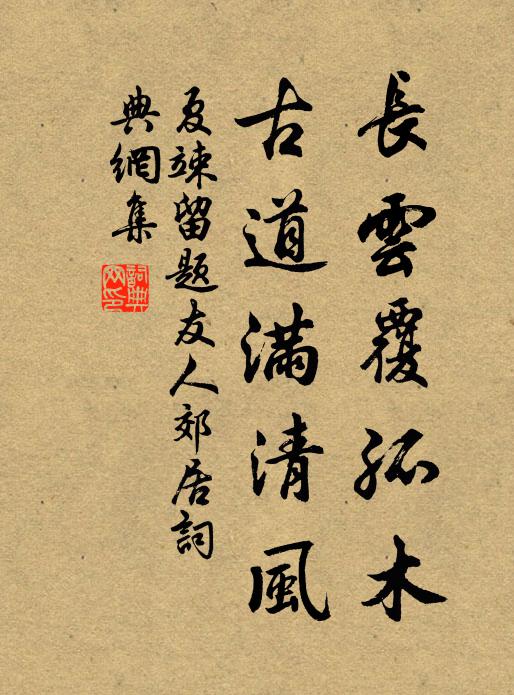 長雲覆孤木
古道滿清風
夏竦留題友人郊居詞
典網集
詞典網印